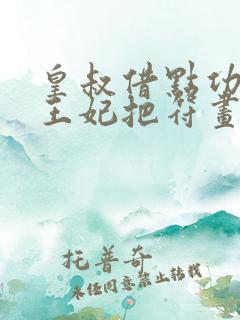 皇叔借點功
王妃把符畫
托普奇
未經同意禁止轉載